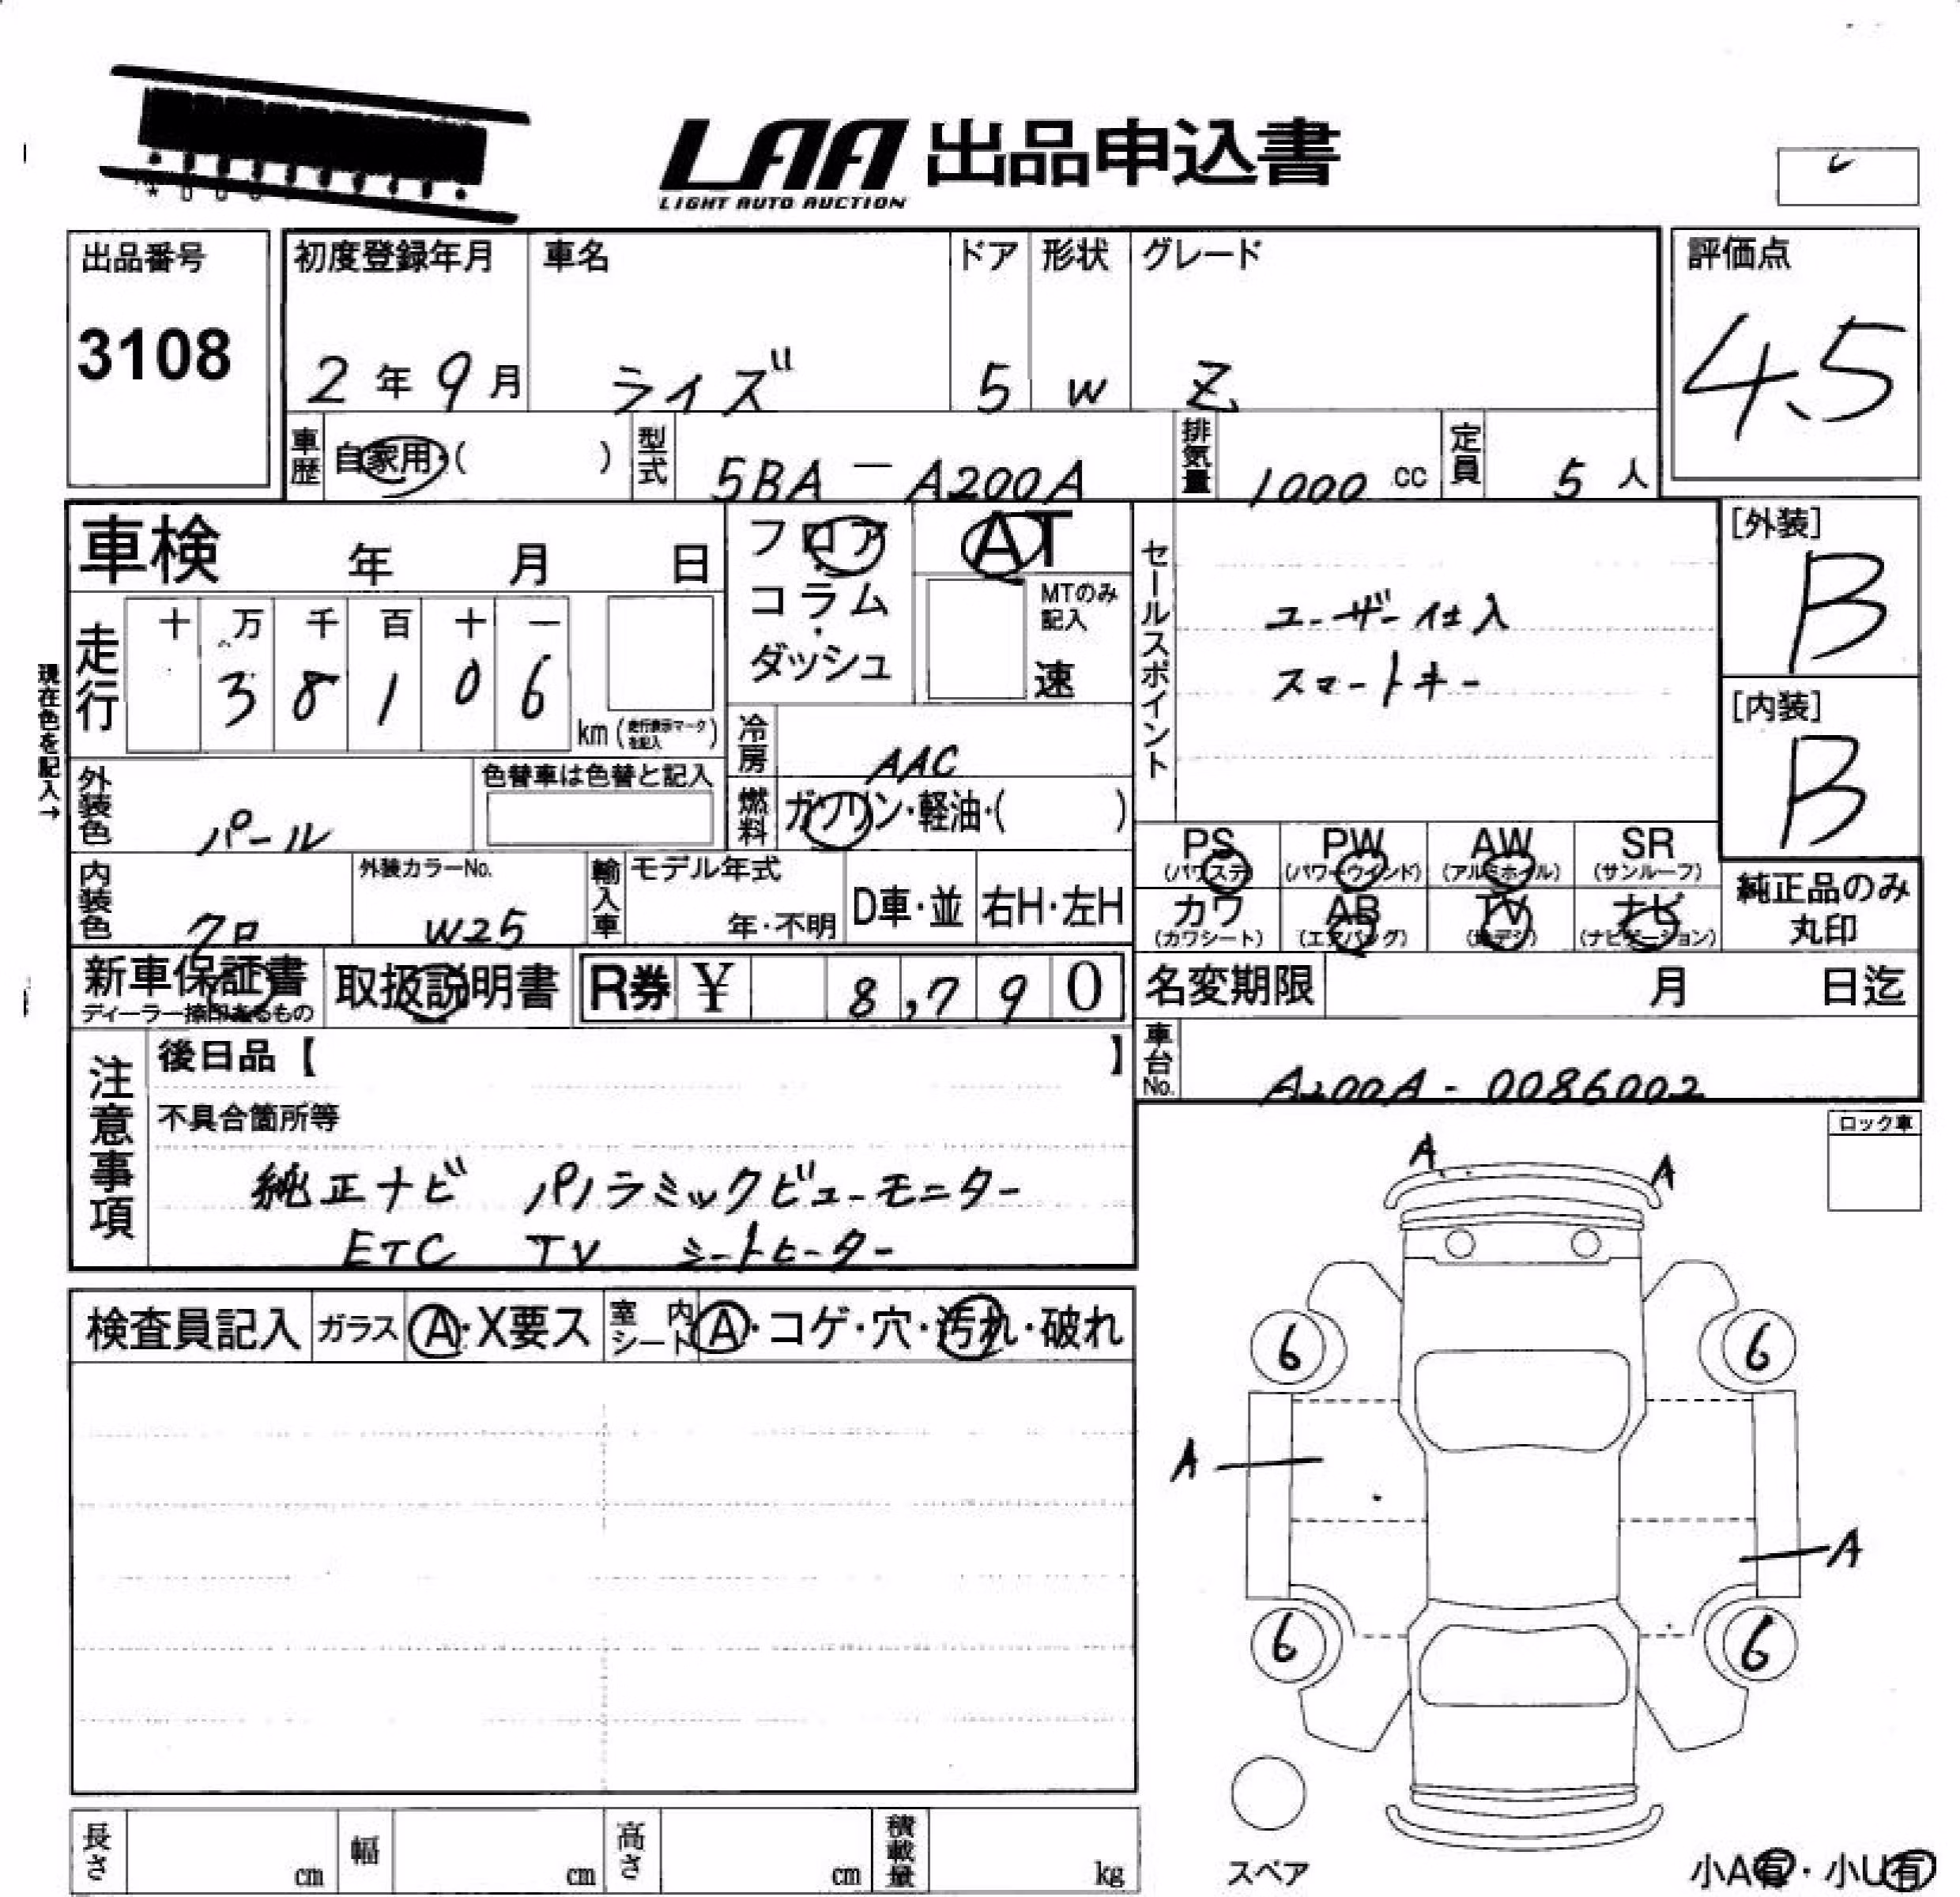 LAA 出品申込書
LIGHT AUTO AUCTION
出品番号 初度登録年月 車名 ドア 形状 グレード 評価点
3108 2年9月 ライズ 5 W Z 4.5
車歴 自家用・( ) 型式 5BA-A200A 排気量 1000 cc 定員 5人
車検 年 月 日 フロア AT セールスポイント [外装]
コラム・ MTのみ記入 B
ダッシュ 速
ユーザー仕入
スマートキー
現在色を記入→
走行 十 万 千 百 十 一
3 8 1 0 6
km (走行表示マークを記入) [内装]
冷房 AAC B
外装色 パール 色替車は色替と記入
燃料 ガソリン・軽油・( )
PS PW AW SR
(パワステ) (パワーウインド) (アルミホイル) (サンルーフ)
カワ AB TV ナビ 純正品のみ
(カワシート) (エアバッグ) (地デジ) (ナビゲーション) 丸印
内装色 クロ 外装カラーNo. W25 輸入車 モデル年式 年・不明 D車・並 右H・左H
新車保証書 取扱説明書 R券 ¥ 8,790 名変期限 月 日迄
ディーラー捺印あるもの
車台No. A200A-0086002
注意事項 後日品【 】
不具合箇所等
純正ナビ パノラミックビューモニター
ETC TV シートヒーター
ロック車
A A
検査員記入 ガラス A・X要ス 室内シート A・コゲ・穴・汚れ・破れ
6 6
A
A
6 6
スペア
小A有・小U有
長さ cm 幅 cm 高さ cm 積載量 kg